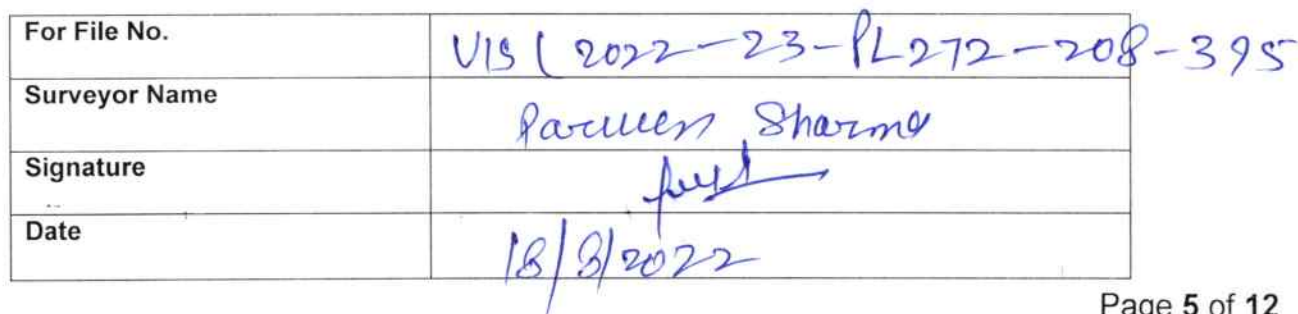 For File No. VIS ( 2022-23-PL272-208-395
Surveyor Name Parveen Sharma
Signature
Date 18/8/2022
Page 5 of 12